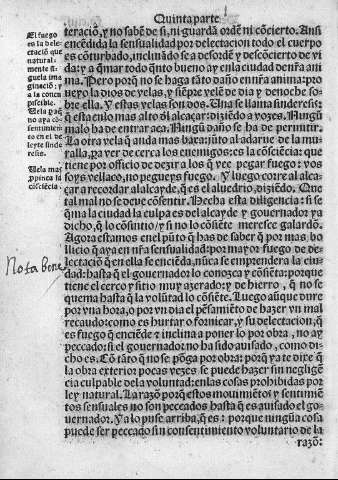 Quinta parte
El fuego
es la dele-
ctaciõ que
natural-
mente si-
guela ima
ginaciõ; y
a la concu
piscible.
Vela paq̃
no aya cõ
sentimiẽ-
to en el de
leyte sinde
resis.
Vela mas
ppinca la
cõsciẽcia
Nota bene
teraciõ, y no sabẽ de si, ni guardã ordẽ ni cõcierto. Ansi
encẽdida la sensualidad por delectacion todo el cuerpo
es cõturbado, inclinãdo se a desordẽ y descõcierto de vi
da: y a q̃mar todo q̃nto bueno ay enla ciudad dẽnr̃a ani
ma. Pero porq̃ no se haga tãto daño ennr̃a anima: pro
ueyo la dios de velas, y siẽpre velẽ de dia y denoche so-
bre ella. Y estas velas son dos. Una se llama sinderesis:
q̃ esta enlo mas alto ðl alcaçar: diziẽdo a vozes. Ningũ
malo ha de entrar aca. Ningũ daño se ha de permitir.
La otra vela q̃ anda mas bara: jũto al adarue de la mu
ralla, pa ver de cerca los enemigos: es la cõsciẽcia: que
tiene por officio de dezir a los q̃ vee pegar fuego: vos
soys vellaco, no pegueys fuego. Y luego corre al alca-
çar a recordar al alcayde, q̃ es el aluedrio, diziẽdo. Que
tal mal no se deue cõsentir. Hecha esta diligencia: si se
q̃ma la ciudad la culpa es del alcayde y gouernador ya
dicho, q̃ lo cõsintio/ y si no lo cõsiẽte meresce galardõ.
Agora estamos enel pũto q̃ has de saber q̃ por mas bo
llicio q̃ aya en nr̃a sensualidad: por mayor fuego de de-
lectaciõ q̃ en ella se enciẽda, nũca se emprendera la ciu-
dad: hasta q̃ el gouernador lo conozca y cõsiẽta: porque
tiene el cerco y sitio muy azerado: y de hierro, q̃ no se
quema hasta q̃ la volũtad lo cõsiẽte. Luego aũque dure
por vna hora, o por vn dia el pẽsamiẽto de hazer vn mal
recaudo: como es hurtar o fornicar, y su delectacion, q̃
es fuego q̃ enciẽde e inclina a poner lo por obra, no ay
peccado: si el gouernador no ha sido auisado, como di-
cho es. Cõ tãto q̃ no se põga por obra: porq̃ ya te dixe q̃
la obra exterior pocas vezes se puede hazer sin negligẽ
cia culpable dela voluntad: enlas cosas prohibidas por
ley natural. La razõ porq̃ estos mouimiẽtos y sentimiẽ
tos sensuales no son peccados hasta q̃ es auisado el go-
uernador. Ya lo puse arriba, q̃ es: porque ningũa cosa
puede ser peccado sin consentimiento voluntario de la
razõ: